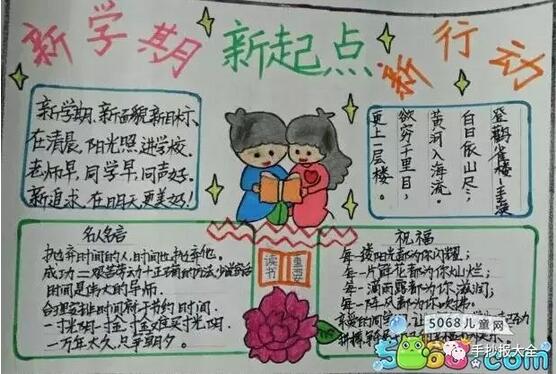 新学期 新起点 新行动
新学期、新面貌、新目标、
在清晨,阳光照,进学校,
老师早,同学早,同声好。
新追求,在明天,更美好!
登鹳雀楼-王之涣
白日依山尽,
黄河入海流。
欲穷千里目,
更上一层楼。
名人名言
抛弃时间的人,时间也抛弃他。
成功=艰苦劳动十正确的方法少说空话
时间是伟大的导师。
合理安排时间就等于节约时间.
一寸光阴一寸金寸金难买寸光阴
一万年太久,只争朝夕。
读书
重要
祝福
每一缕阳光都为你闪耀;
每一片鲜花都为你灿烂;
每一滴雨露都为你滋润;
每一阵风都为你吹拂。
亲爱的同学
5068儿童网
5068.com
手抄报大全